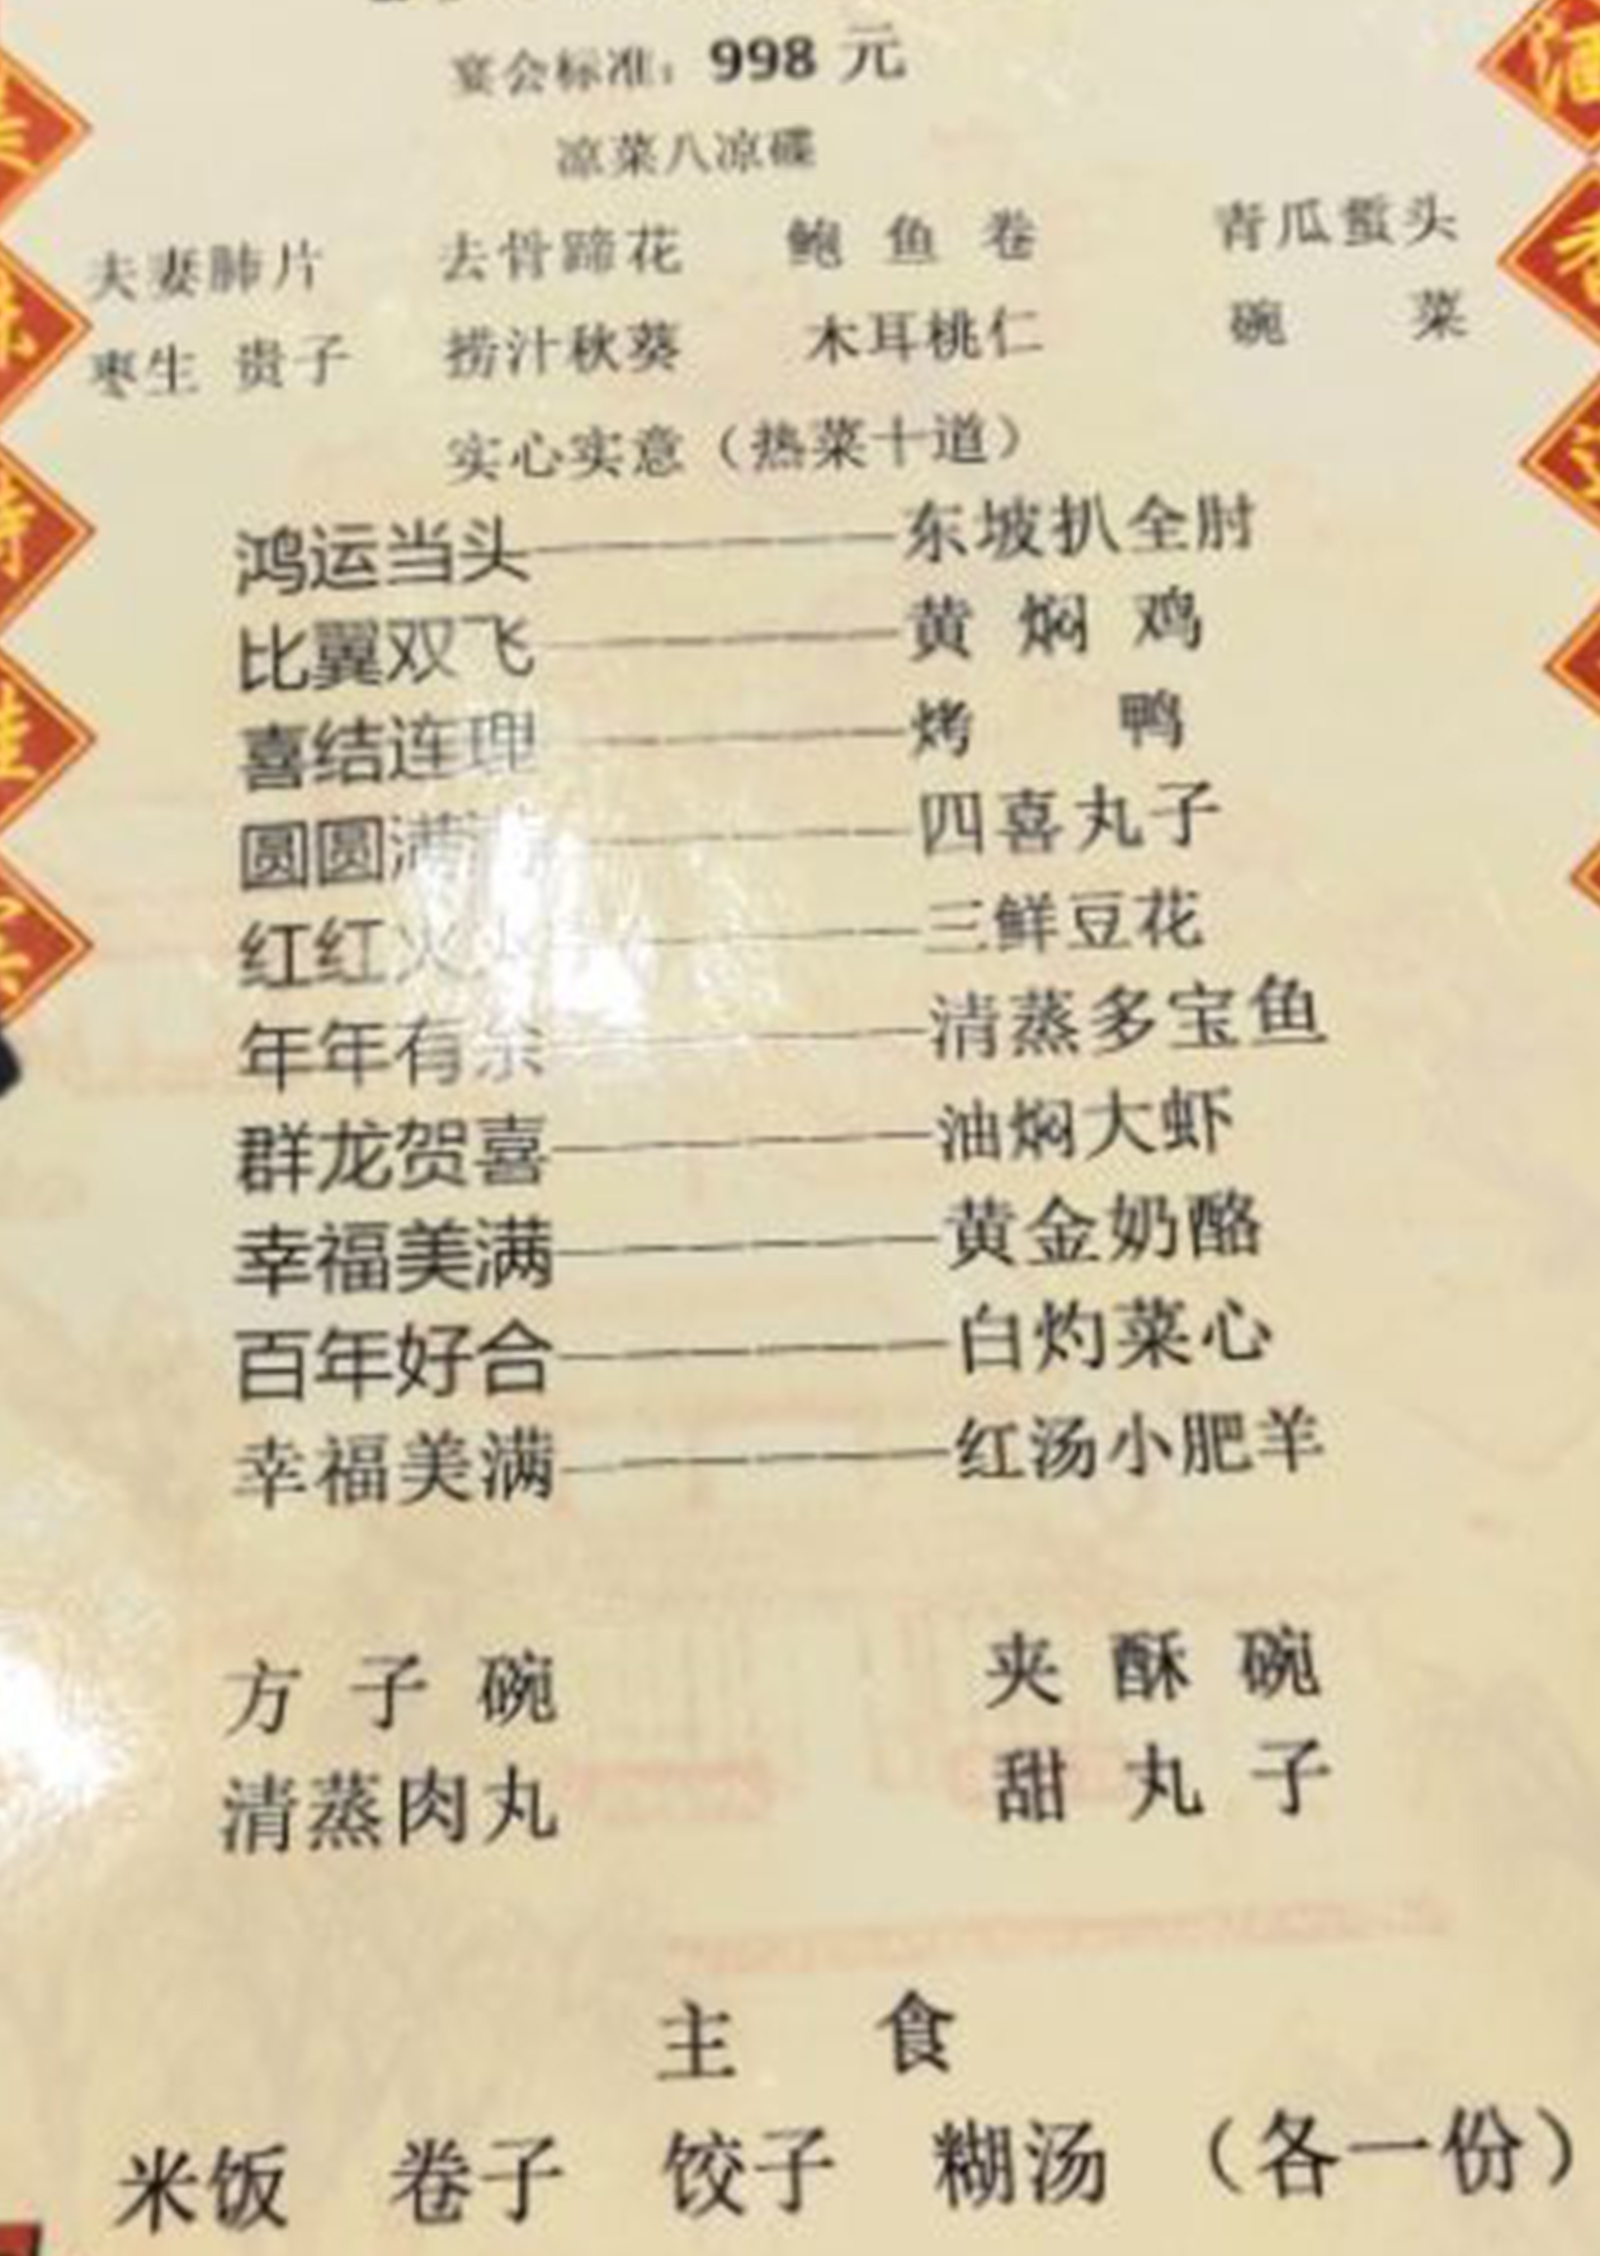 宴会标准：998 元
凉菜八凉碟
夫妻肺片 去骨蹄花 鲍鱼卷 青瓜蜇头
枣生贵子 捞汁秋葵 木耳桃仁 碗菜
实心实意（热菜十道）
鸿运当头————东坡扒全肘
比翼双飞————黄焖鸡
喜结连理————烤鸭
圆圆满满————四喜丸子
红红火火————三鲜豆花
年年有余————清蒸多宝鱼
群龙贺喜————油焖大虾
幸福美满————黄金奶酪
百年好合————白灼菜心
幸福美满————红汤小肥羊
方子碗 夹酥碗
清蒸肉丸 甜丸子
主食
米饭 卷子 饺子 糊汤 （各一份）